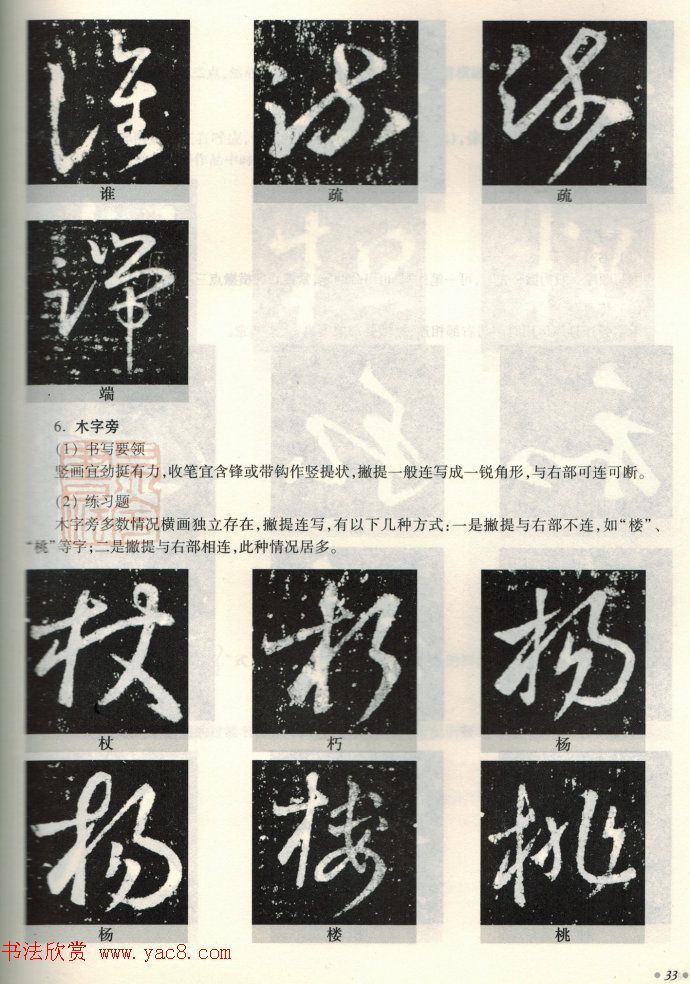 谁 疏 疏
端
6. 木字旁
(1) 书写要领
竖画宜劲挺有力,收笔宜含锋或带钩作竖提状,撇提一般连写成一锐角形,与右部可连可断。
(2) 练习题
木字旁多数情况横画独立存在,撇提连写,有以下几种方式:一是撇提与右部不连,如“楼”、
“桃”等字;二是撇提与右部相连,此种情况居多。
杖 朽 杨
杨 楼 桃
书法欣赏 www.yac8.com
33